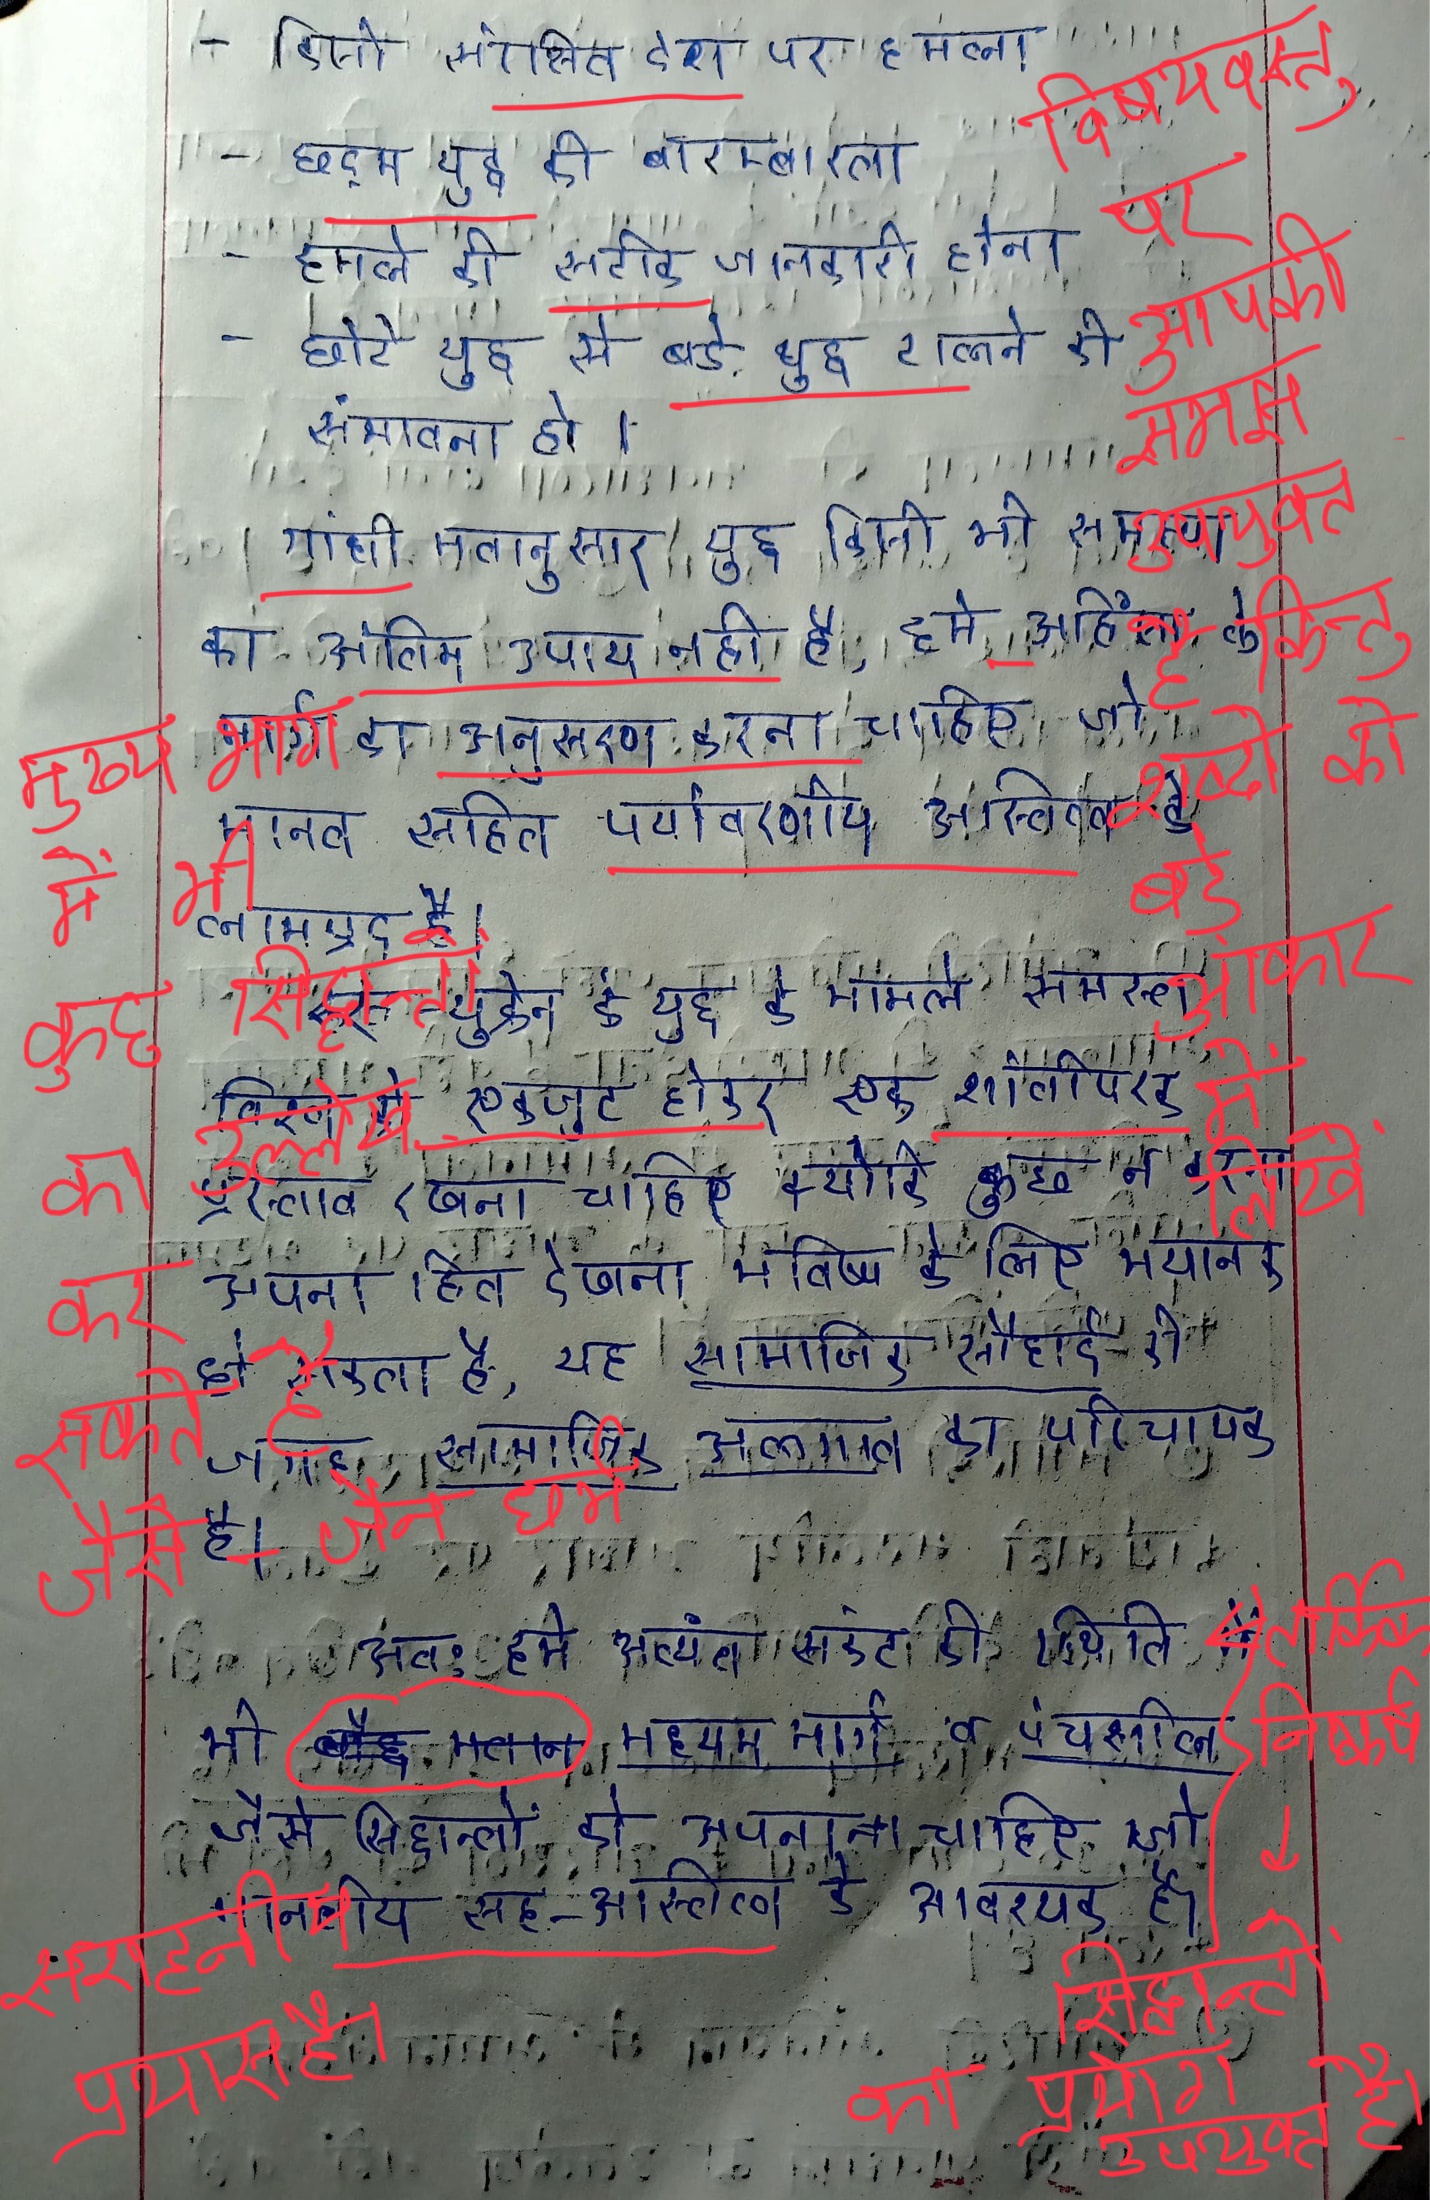 - किसी संरक्षित देश पर हमला
- छद्म युद्ध की बारम्बारता
- हमले की सटीक जानकारी होना
- छोटे युद्ध से बड़े युद्ध टालने की
संभावना हो ।
गांधी मतानुसार युद्ध किसी भी समस्या
का अंतिम उपाय नही है, हमे अहिंसा के
मार्ग का अनुसरण करना चाहिए जो
मानव सहित पर्यावरणीय अस्तित्व के
लाभप्रद है।
रूस-युक्रेन के युद्ध के मामले समस्त
विश्व को एकजुट होकर एक शांतीपरक
प्रस्ताव रखना चाहिए क्योंकि कुछ न करना
अपना हित देखना भविष्य के लिए भयानक
हो सकता है, यह सामाजिक सौहार्द की
जगह सामाजिक अलगाव का परिचायक
है।
अतः हमे अत्यंत संकट की स्थिति में
भी मध्यम मार्ग व पंचशील
जैसे सिद्धान्तों को अपनाना चाहिए जो
मानवीय सह-अस्तित्व के आवश्यक है।
विषयवस्तु
पर
आपकी
समझ
उपयुक्त
है किन्तु
शब्दों को
बड़े
आकार
में
लिखें
मुख्य भाग
में भी
कुछ सिद्धान्तों
का उल्लेख
कर
सकते हैं
जैसे - जैन धर्म
तार्किक
निष्कर्ष
↓
सिद्धान्तों
का प्रयोग
उपयुक्त है।
सराहनीय
प्रयास है।